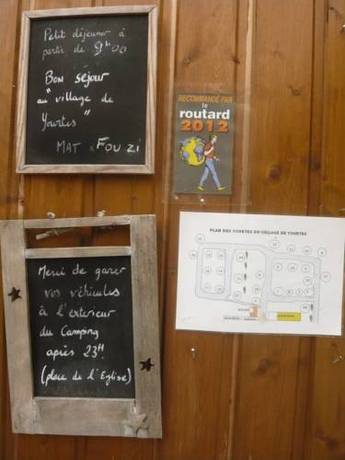 Petit déjeuner à
partir de 9h00
Bon séjour
au "village de
Yourtes"
MAT & FOUZI
RECOMMANDÉ PAR
le
routard
2012
PLAN DES YOURTES DU VILLAGE DE YOURTES
Merci de garer
vos véhicules
à l'exterieur
du Camping
après 23H
(place de l'Eglise)